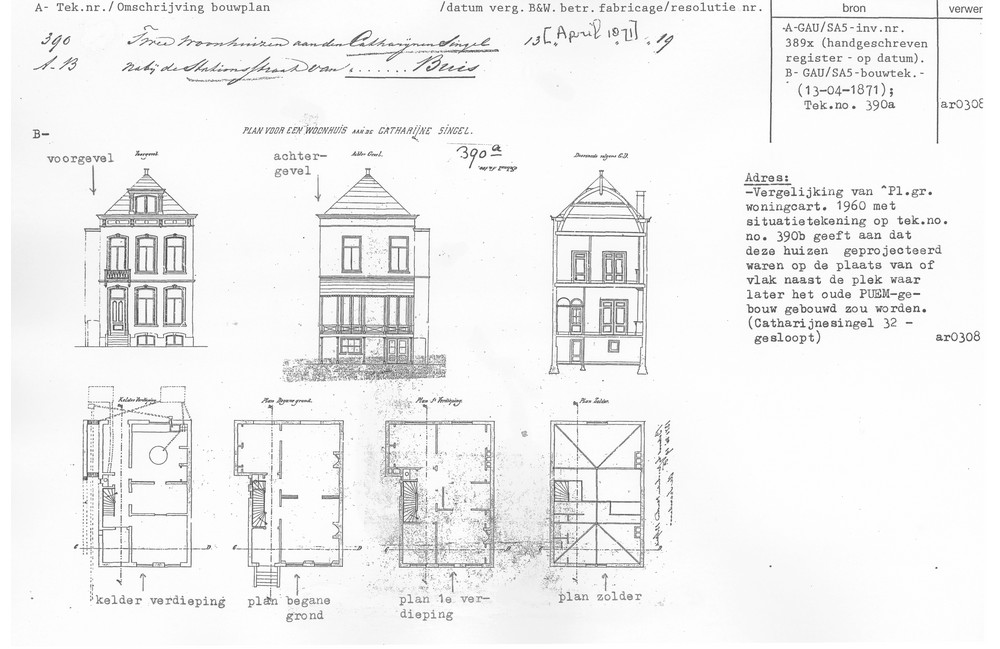 A- Tek.nr./Omschrijving bouwplan /datum verg. B&W. betr. fabricage/resolutie nr.
bron
verwer
390 Twee woonhuizen aan den Catharijnen Singel 13 [April 1871] . 19
A-B nabij de Stationsstraat van ....... Buis
-A-GAU/SA5-inv.nr.
389x (handgeschreven
register - op datum).
B- GAU/SA5-bouwtek.-
(13-04-1871);
Tek.no. 390a
ar0308
B-
PLAN VOOR EEN WOONHUIS AAN DE CATHARIJNE SINGEL.
390a
voorgevel
Voorgevel
achter-
gevel
Achter Gevel.
Doorsnede volgens C.D.
Adres:
-Vergelijking van ^Pl.gr.
woningcart. 1960 met
situatietekening op tek.no.
no. 390b geeft aan dat
deze huizen geprojecteerd
waren op de plaats van of
vlak naast de plek waar
later het oude PUEM-ge-
bouw gebouwd zou worden.
(Catharijnesingel 32 -
gesloopt)
ar0308
Kelder Verdieping.
Plan Begane grond.
Plan 1e Verdieping.
Plan Zolder.
C D
C D
C D
C D
kelder verdieping
plan begane
grond
plan 1e ver-
dieping
plan zolder